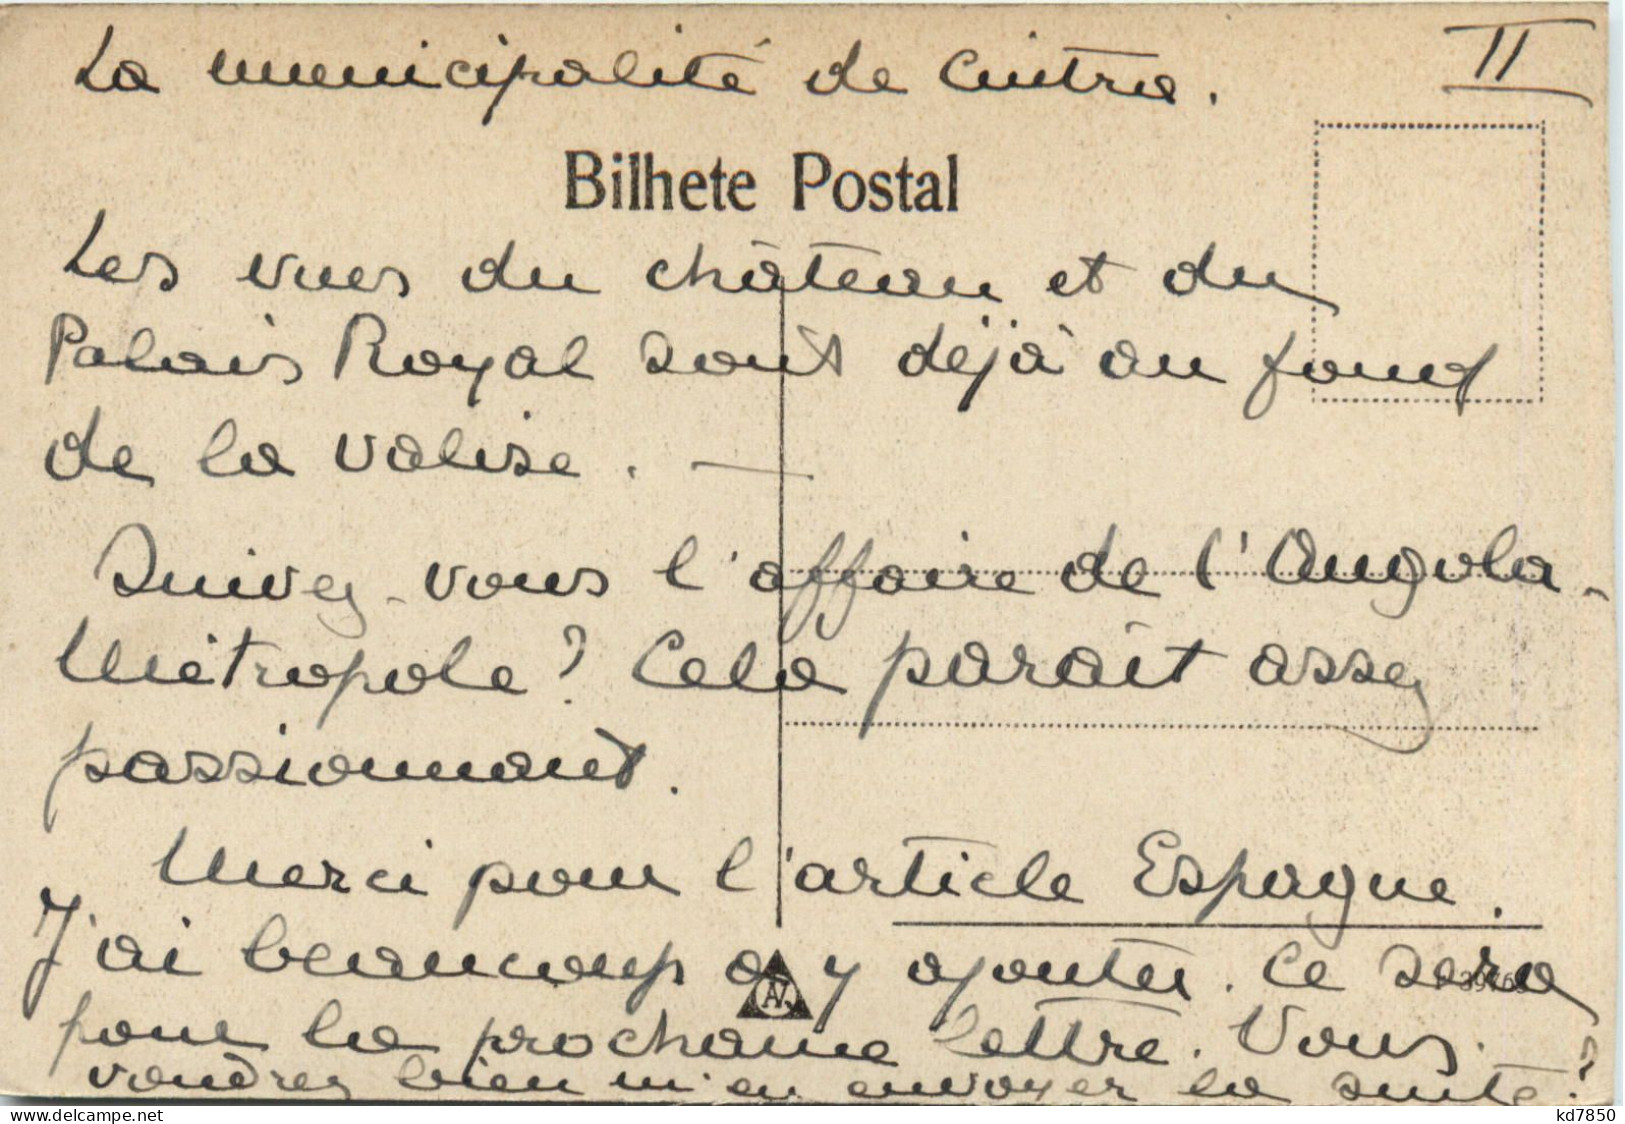 La municipalité de Cintra.
II
Bilhete Postal
Les vues du château et du
Palais Royal sont déjà au fond
de la valise. —
Suivez-vous l'affaire de l'Angola-
Métropole? Cela paraît assez
passionnant.
Merci pour l'article Espagne.
J'ai beaucoup à y ajouter. Ce sera
pour la prochaine lettre. Vous
voudrez bien m'en envoyer la suite?
www.delcampe.net
kd7850